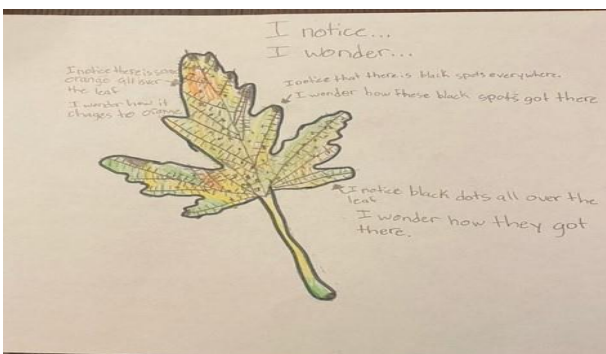 I notice...
I wonder...
I notice there is some
orange all over
the leaf
I wonder how it
chages to orange
I notice that there is black spots everywhere.
I wonder how these black spots got there
I notice black dots all over the
leaf
I wonder how they got
there.